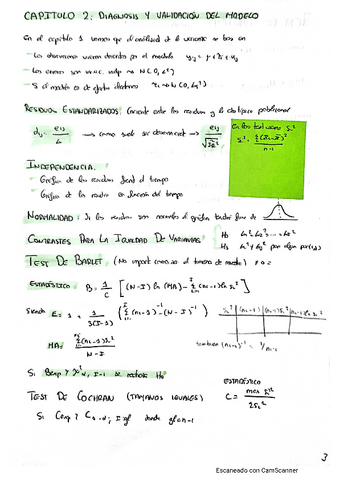 CAPITULO 2: DIAGNOSIS Y VALIDACIÓN DEL MODELO
En el capitulo 1 vemos que el análisis de la varianza se basa en
Las observaciones vienen descritas por el modelo yij = μ + τi + uij
Los errores son v.a. indep N(0, σ²)
Si el modelo es de efectos aleatorios τi ~ N(0, στ²)
RESIDUOS ESTANDARIZADOS: Cociente entre los residuos y la
dij = eij/σ → como suele ser desconocida → eij/√ŝ²
En los test usaremos
n-1
INDEPENDENCIA:
Gráfico de los residuos frente al tiempo
Gráfico de los residuos en función del tiempo
NORMALIDAD: Si los residuos son normales el gráfico tendrá forma de
CONTRASTES PARA LA IGUALDAD DE VARIANZAS
H0 σ1² = σ2² ... = σI²
H1 σi² ≠ σj² por algún par (i,j)
TEST DE BARLET (No importa como sea el tamaño de muestra)
ESTADÍSTICO B = 1/C [(N-I) ln (MA) - Σ (ni-1) ln si²]
Siendo C = 1 + 1/3(I-1) (Σ (ni-1)⁻¹ - (N-I)⁻¹)
MA = Σ(ni-1)si² / N-I
también (ni-1)⁻¹ = 1/ni-1
Si Bexp > χ²α, I-1 se rechaza H0
TEST DE COCHRAN (TAMAÑOS IGUALES)
ESTADÍSTICO
C = max si² / Σsi²
Si Cexp > Cα, I, gl donde gl = n-1
3
Escaneado con CamScanner